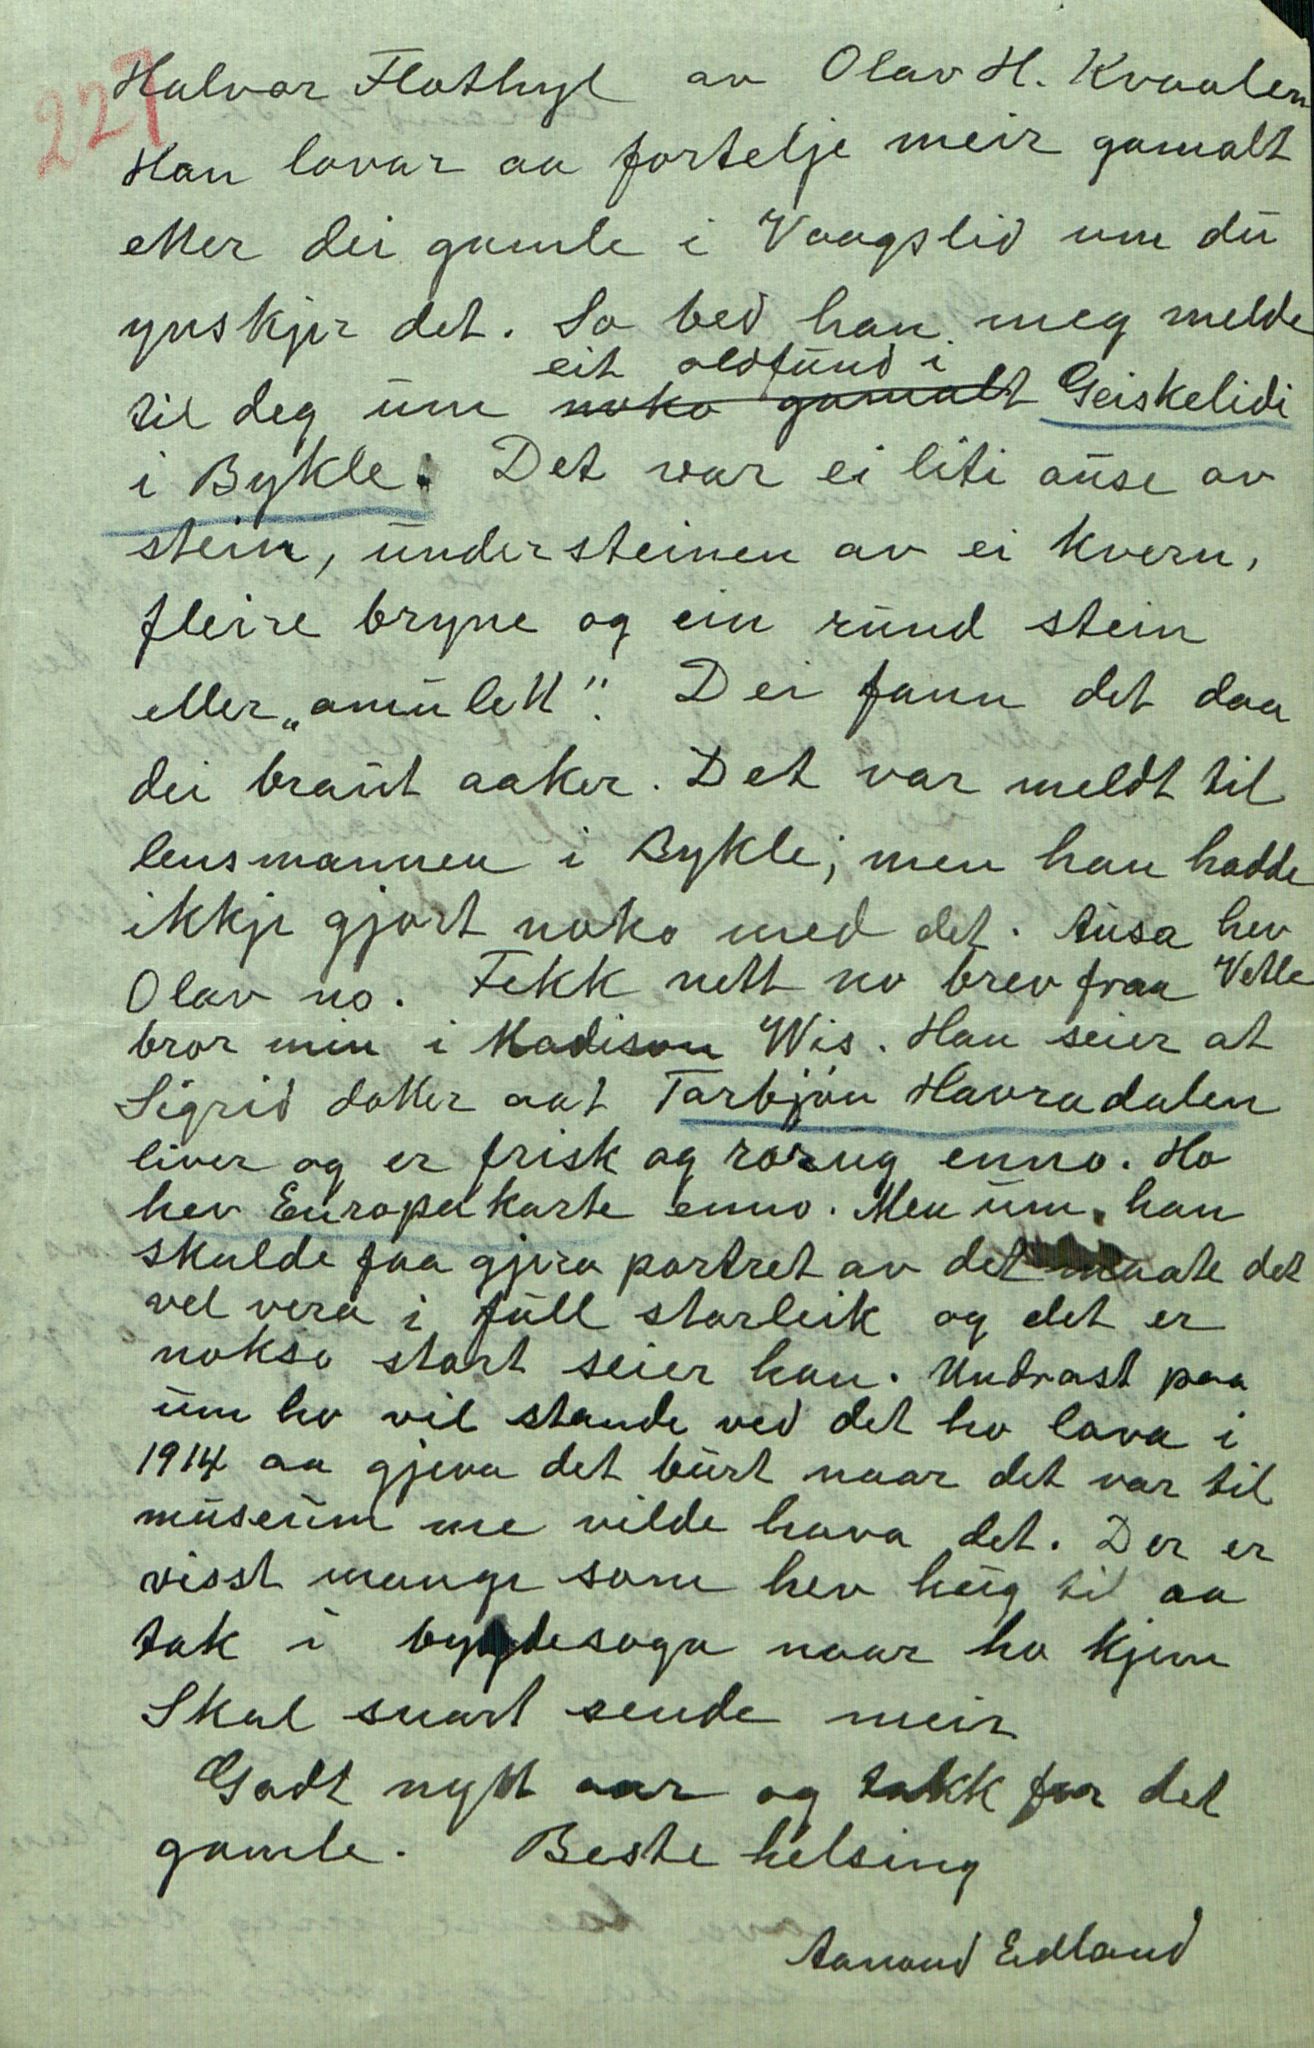 227
Halvor Flothyl av Olav H. Kvaalen
Han lovar aa fortelje meir gamalt
etter dei gamle i Vaagslid um du
ynskjer det. So bed han meg melde
eit oldfund i
til deg um noko gamalt Geiskelidi
i Bykle. Det var ei liti ause av
stein, understeinen av ei kvern,
fleire bryne og ein rund stein
eller „amulett". Dei fann det daa
dei braut aaker. Det var meldt til
lensmannen i Bykle; men han hadde
ikkje gjort noko med det. Ausa hev
Olav no. Fekk nett no brev fraa Vetle
bror min i Madison Wis. Han seier at
Sigrid dotter aat Tarbjøn Havradalen
liver og er frisk og rorug enno. Ho
hev Europakarte enno. Men um han
skulde faa gjera portret av det maate det
vel vera i full storleik og det er
nokso stort seier han. Undrast paa
um ho vil stande ved det ho lova i
1914 aa gjeva det burt naar det var til
museum me vilde hava det. Der er
visst mange som hev hug til aa
tak i bygdesoga naar ho kjem
Skal snart sende meir
Godt nytt aar og takk for det
gamle. Beste helsing
Aanond Edland